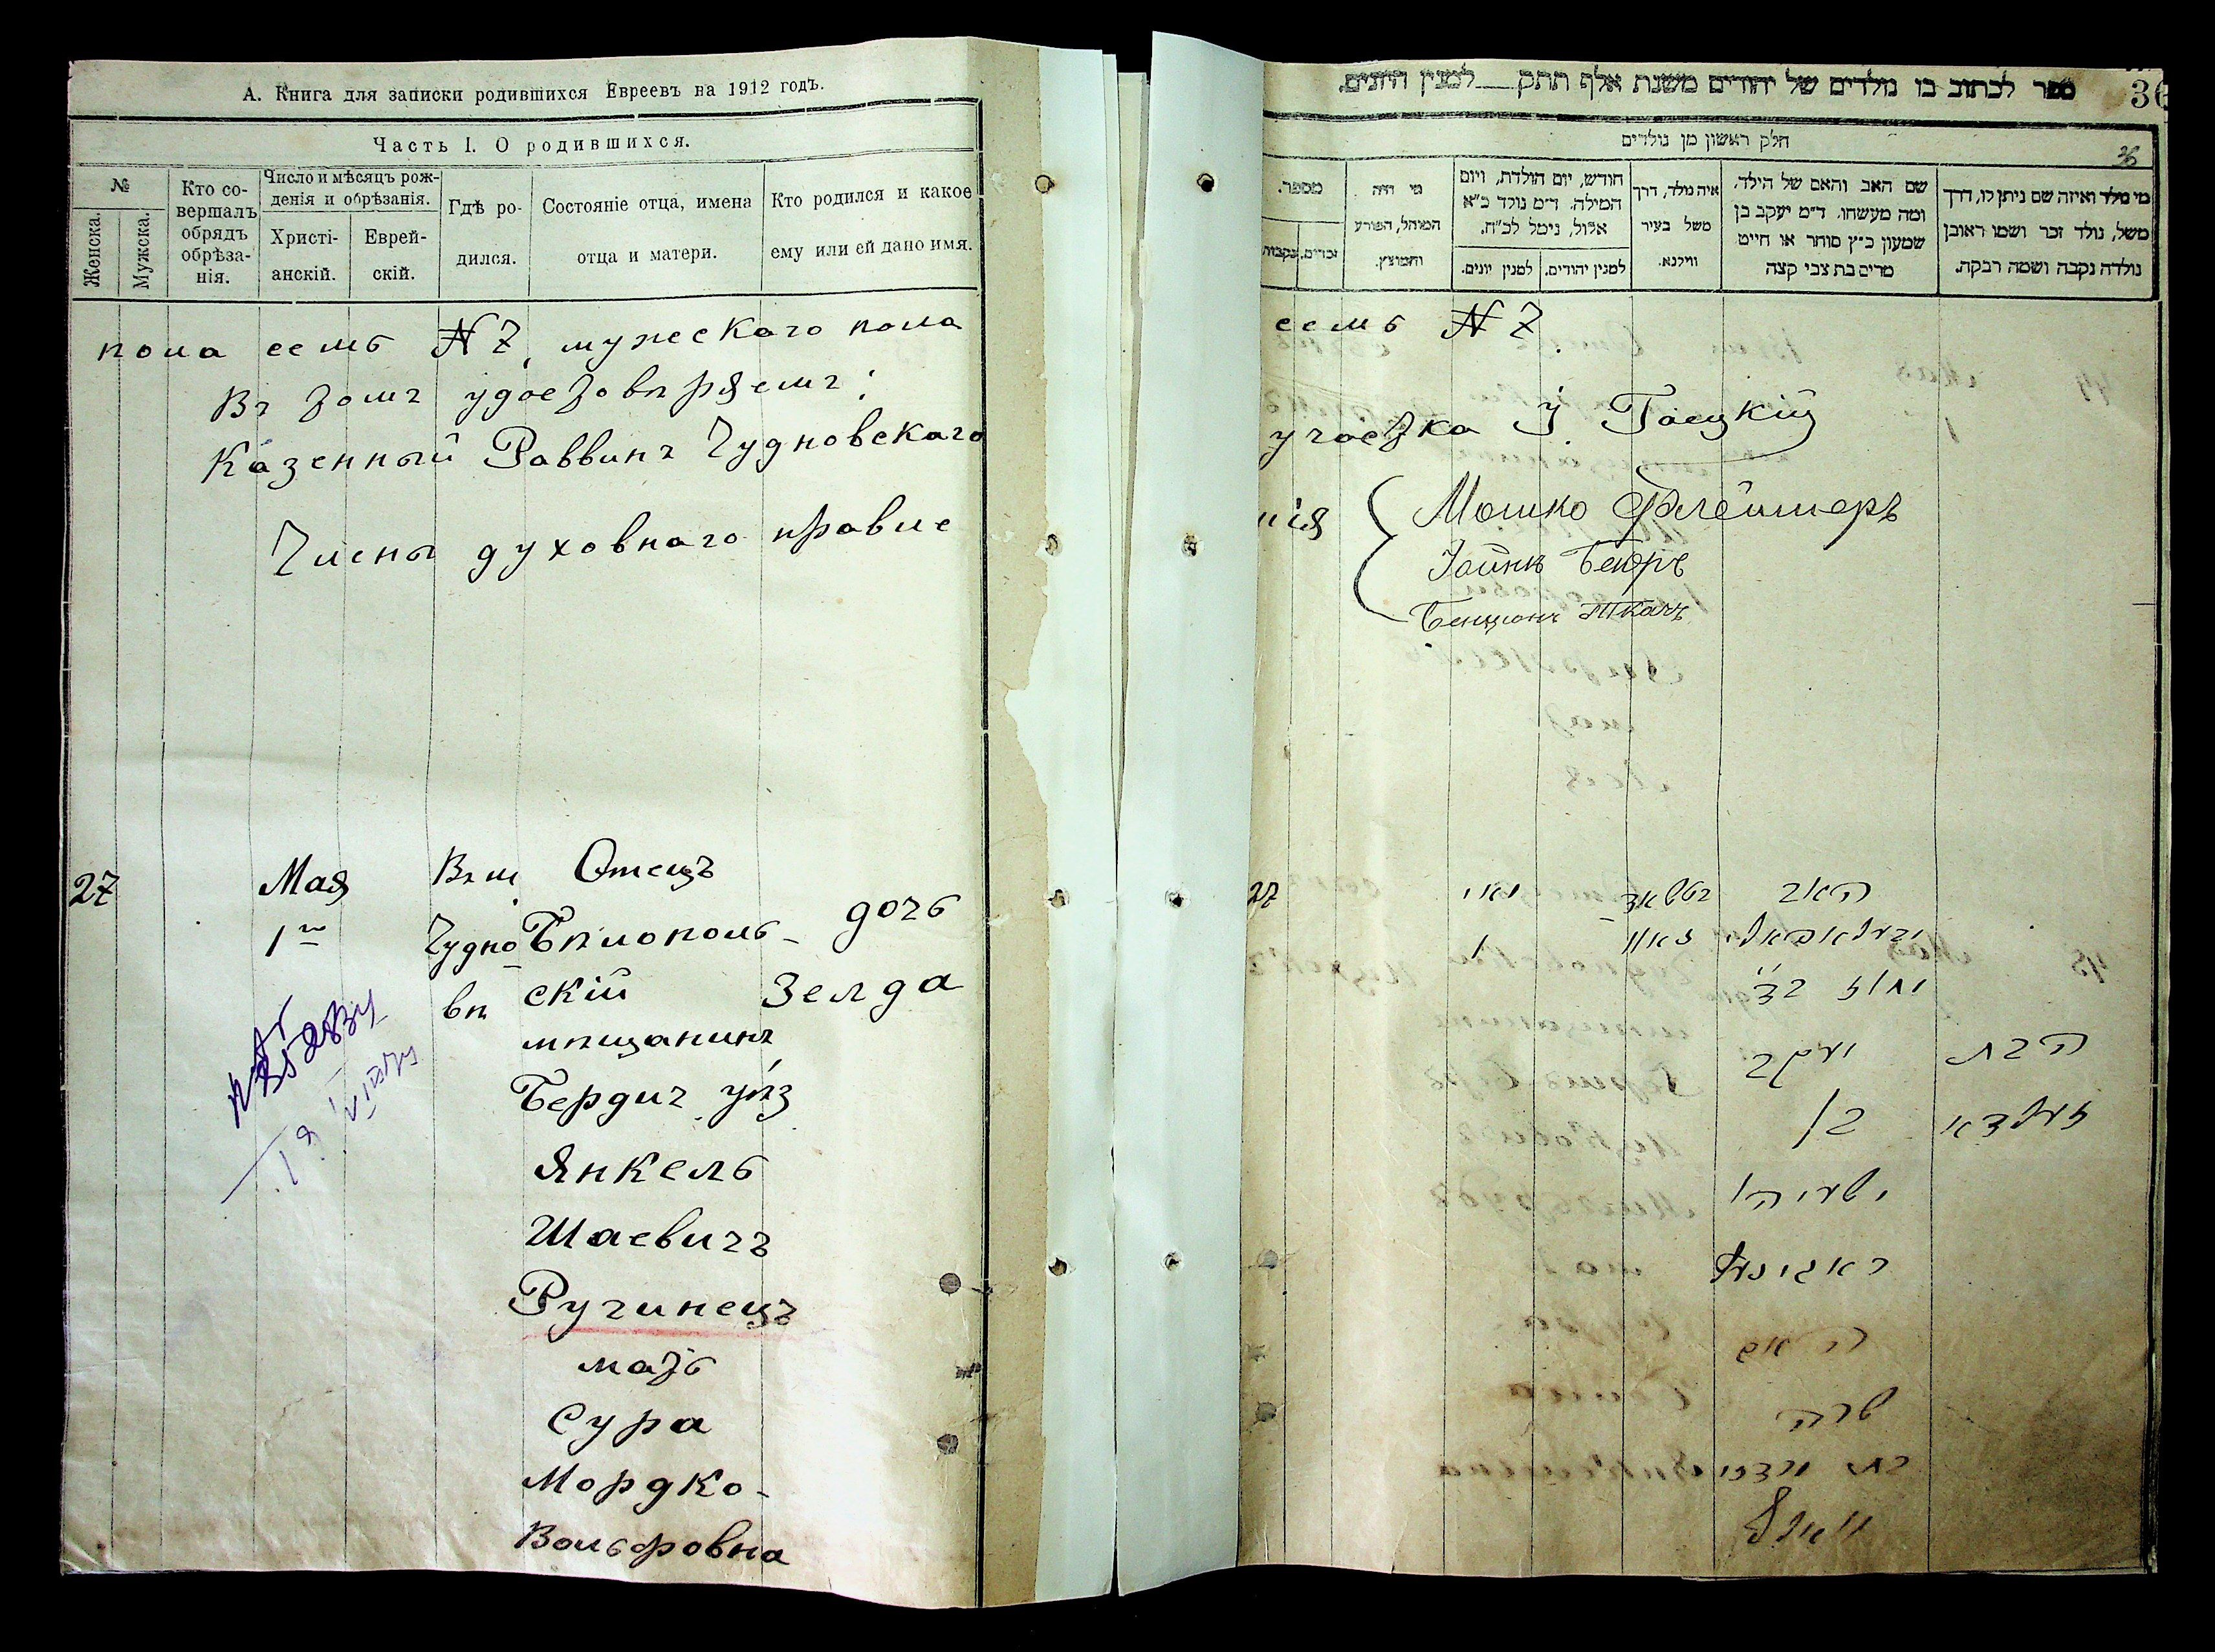 А. Книга для записки родившихся Евреевъ на 1912 годъ.
Часть I. О родившихся.
№
Женска.
Мужска.
Кто со-
вершалъ
обрядъ
обрѣза-
нія.
Число и мѣсяцъ рож-
денія и обрѣзанія.
Христі-
анскій.
Еврей-
скій.
Гдѣ ро-
дился.
Состояніе отца, имена
отца и матери.
Кто родился и какое
ему или ей дано имя.
пола семь № 7, мужескаго пола
Въ томъ удостовѣряемъ:
Казенный Раввинъ Чудновскаго
Члены духовнаго правле
27
Мая
1го
Въ м
Чудно
вѣ
Отецъ
Бѣлополь-
скій
мѣщанинъ
Бердич уѣз
Янкель
Шаевичъ
Ручинецъ
мать
Сура
Мордко-
Вольфовна
дочь
Зелда
ספר לכתוב בו נולדים של יהודים משנת אלף תתק למנין היונים.
36
חלק ראשון מן נולדים
מספר.
זכרים.
נקבות
מי היה
המוהל, הפורע
והמוצץ.
חודש, יום הולדת, ויום
המילה. ד״מ נולד כ״א
אלול, נימל לכ״ח.
למנין יונים.
למנין יהודים.
איה נולד, דרך
משל בעיר
ווילנא.
שם האב והאם של הילד,
ומה מעשהו. ד״מ יעקב בן
שמעון כ״ץ סוחר או חייט
מרים בת צבי קצה
מי נולד ואיזה שם ניתן לו, דרך
משל, נולד זכר ושמו ראובן
נולדה נקבה ושמה רבקה.
семь № 7.
участка І. Гацкій
нія
Мошко Флейшеръ
Бенціонъ Ткачъ
27
מאי
1
האב
יעקב
בן
ישעיהו
האם
שרה
בת מרדכי
וואלף
הבת
זעלדא